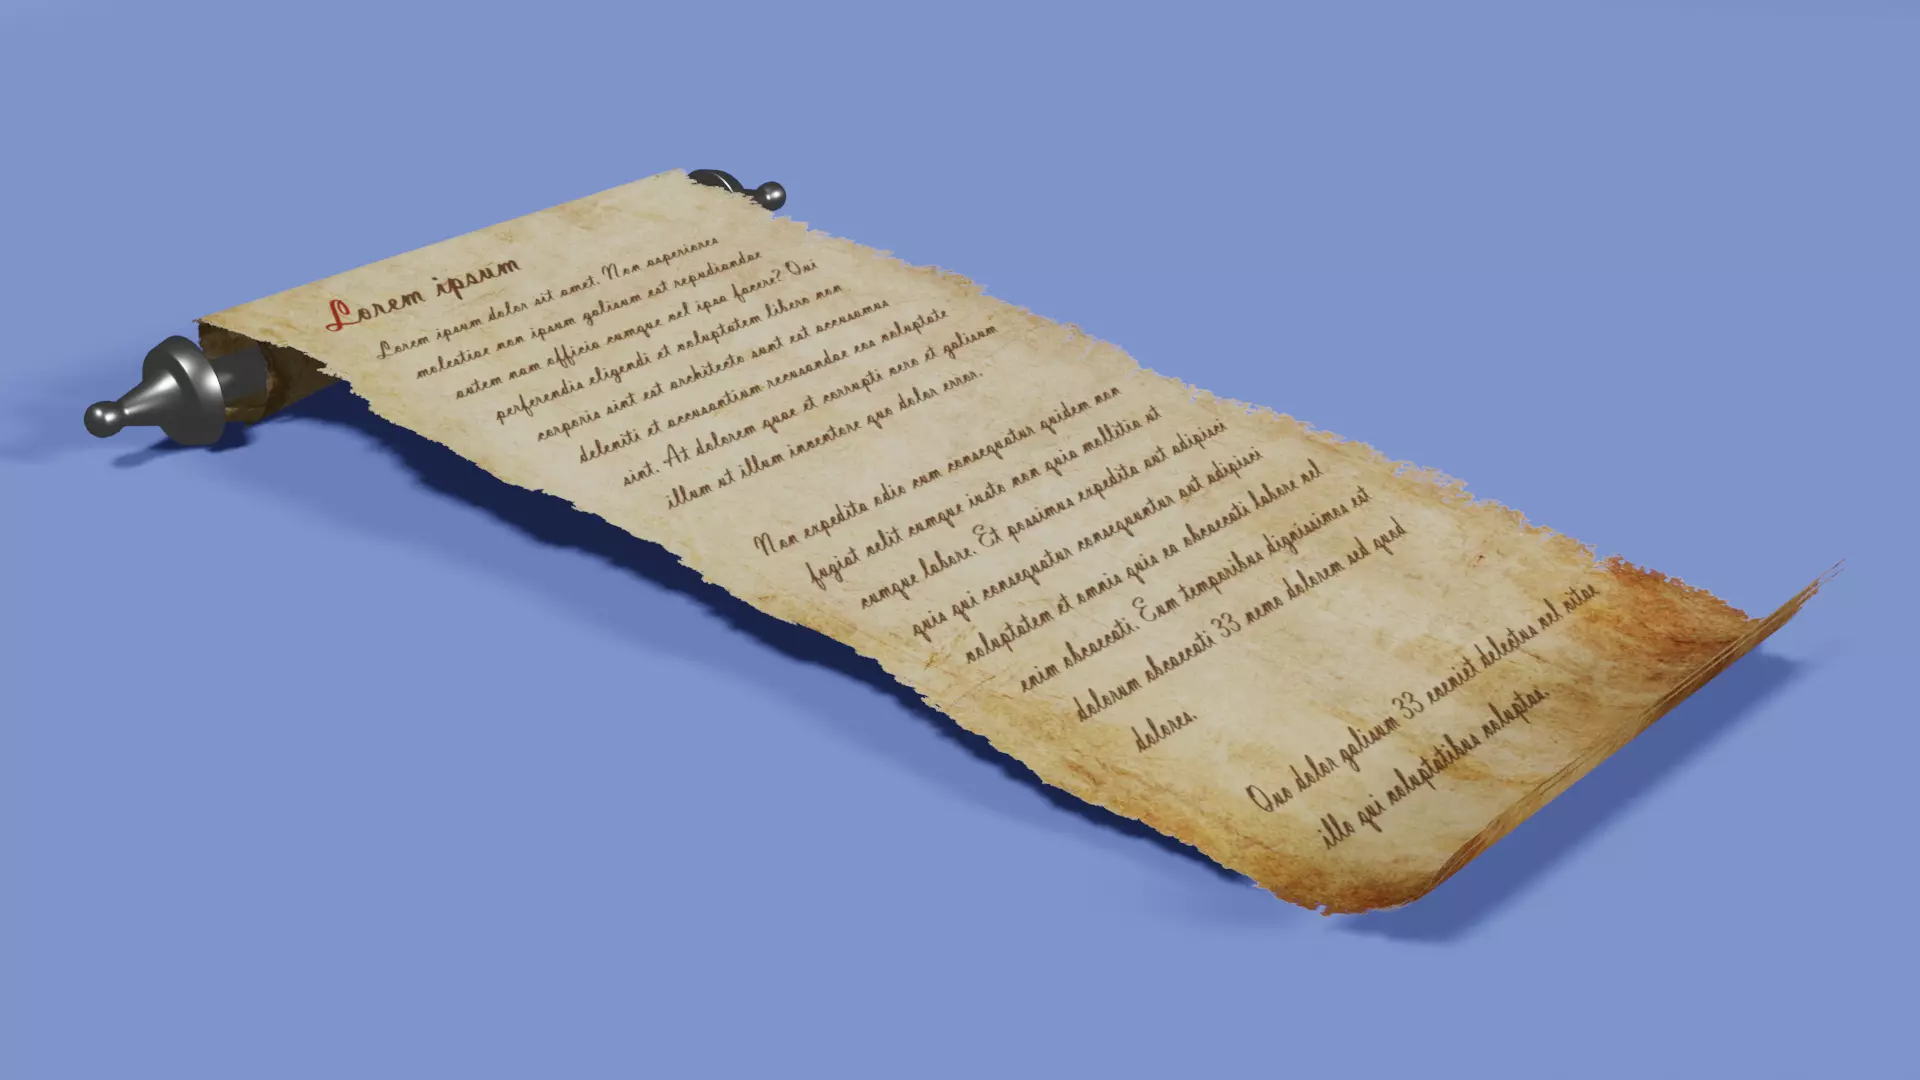 Lorem ipsum
Lorem ipsum dolor sit amet. Non asperiores
molestiae non ipsum galisum est repudiandae
autem nam officia cumque vel ipsa facere? Qui
perferendis eligendi et voluptatem libero non
corporis sint est architecto sunt est accusamus
deleniti et accusantium recusandae eos voluptate
sint. At dolorem quae et corrupti vero et galisum
illum ut illum inventore quo dolor error.
Non expedita odio cum consequatur quidem non
fugiat velit cumque iusto non quia mollitia ut
cumque labore. Et possimus expedita aut adipisci
quis qui consequatur consequuntur aut adipisci
voluptatem et omnis quis ea obcaecati labore vel
enim obcaecati. Eum temporibus dignissimos est
dolorum obcaecati 33 nemo dolorem sed quod
dolores.
Quo dolor galisum 33 eveniet delectus vel vitae
illo qui voluptatibus voluptas.